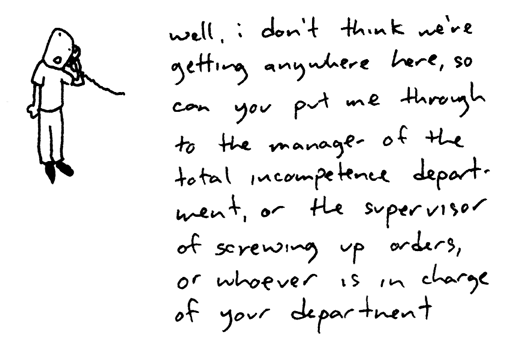 well, i don't think we're
getting anywhere here, so
can you put me through
to the manager of the
total incompetence depart-
ment, or the supervisor
of screwing up orders,
or whoever is in charge
of your department